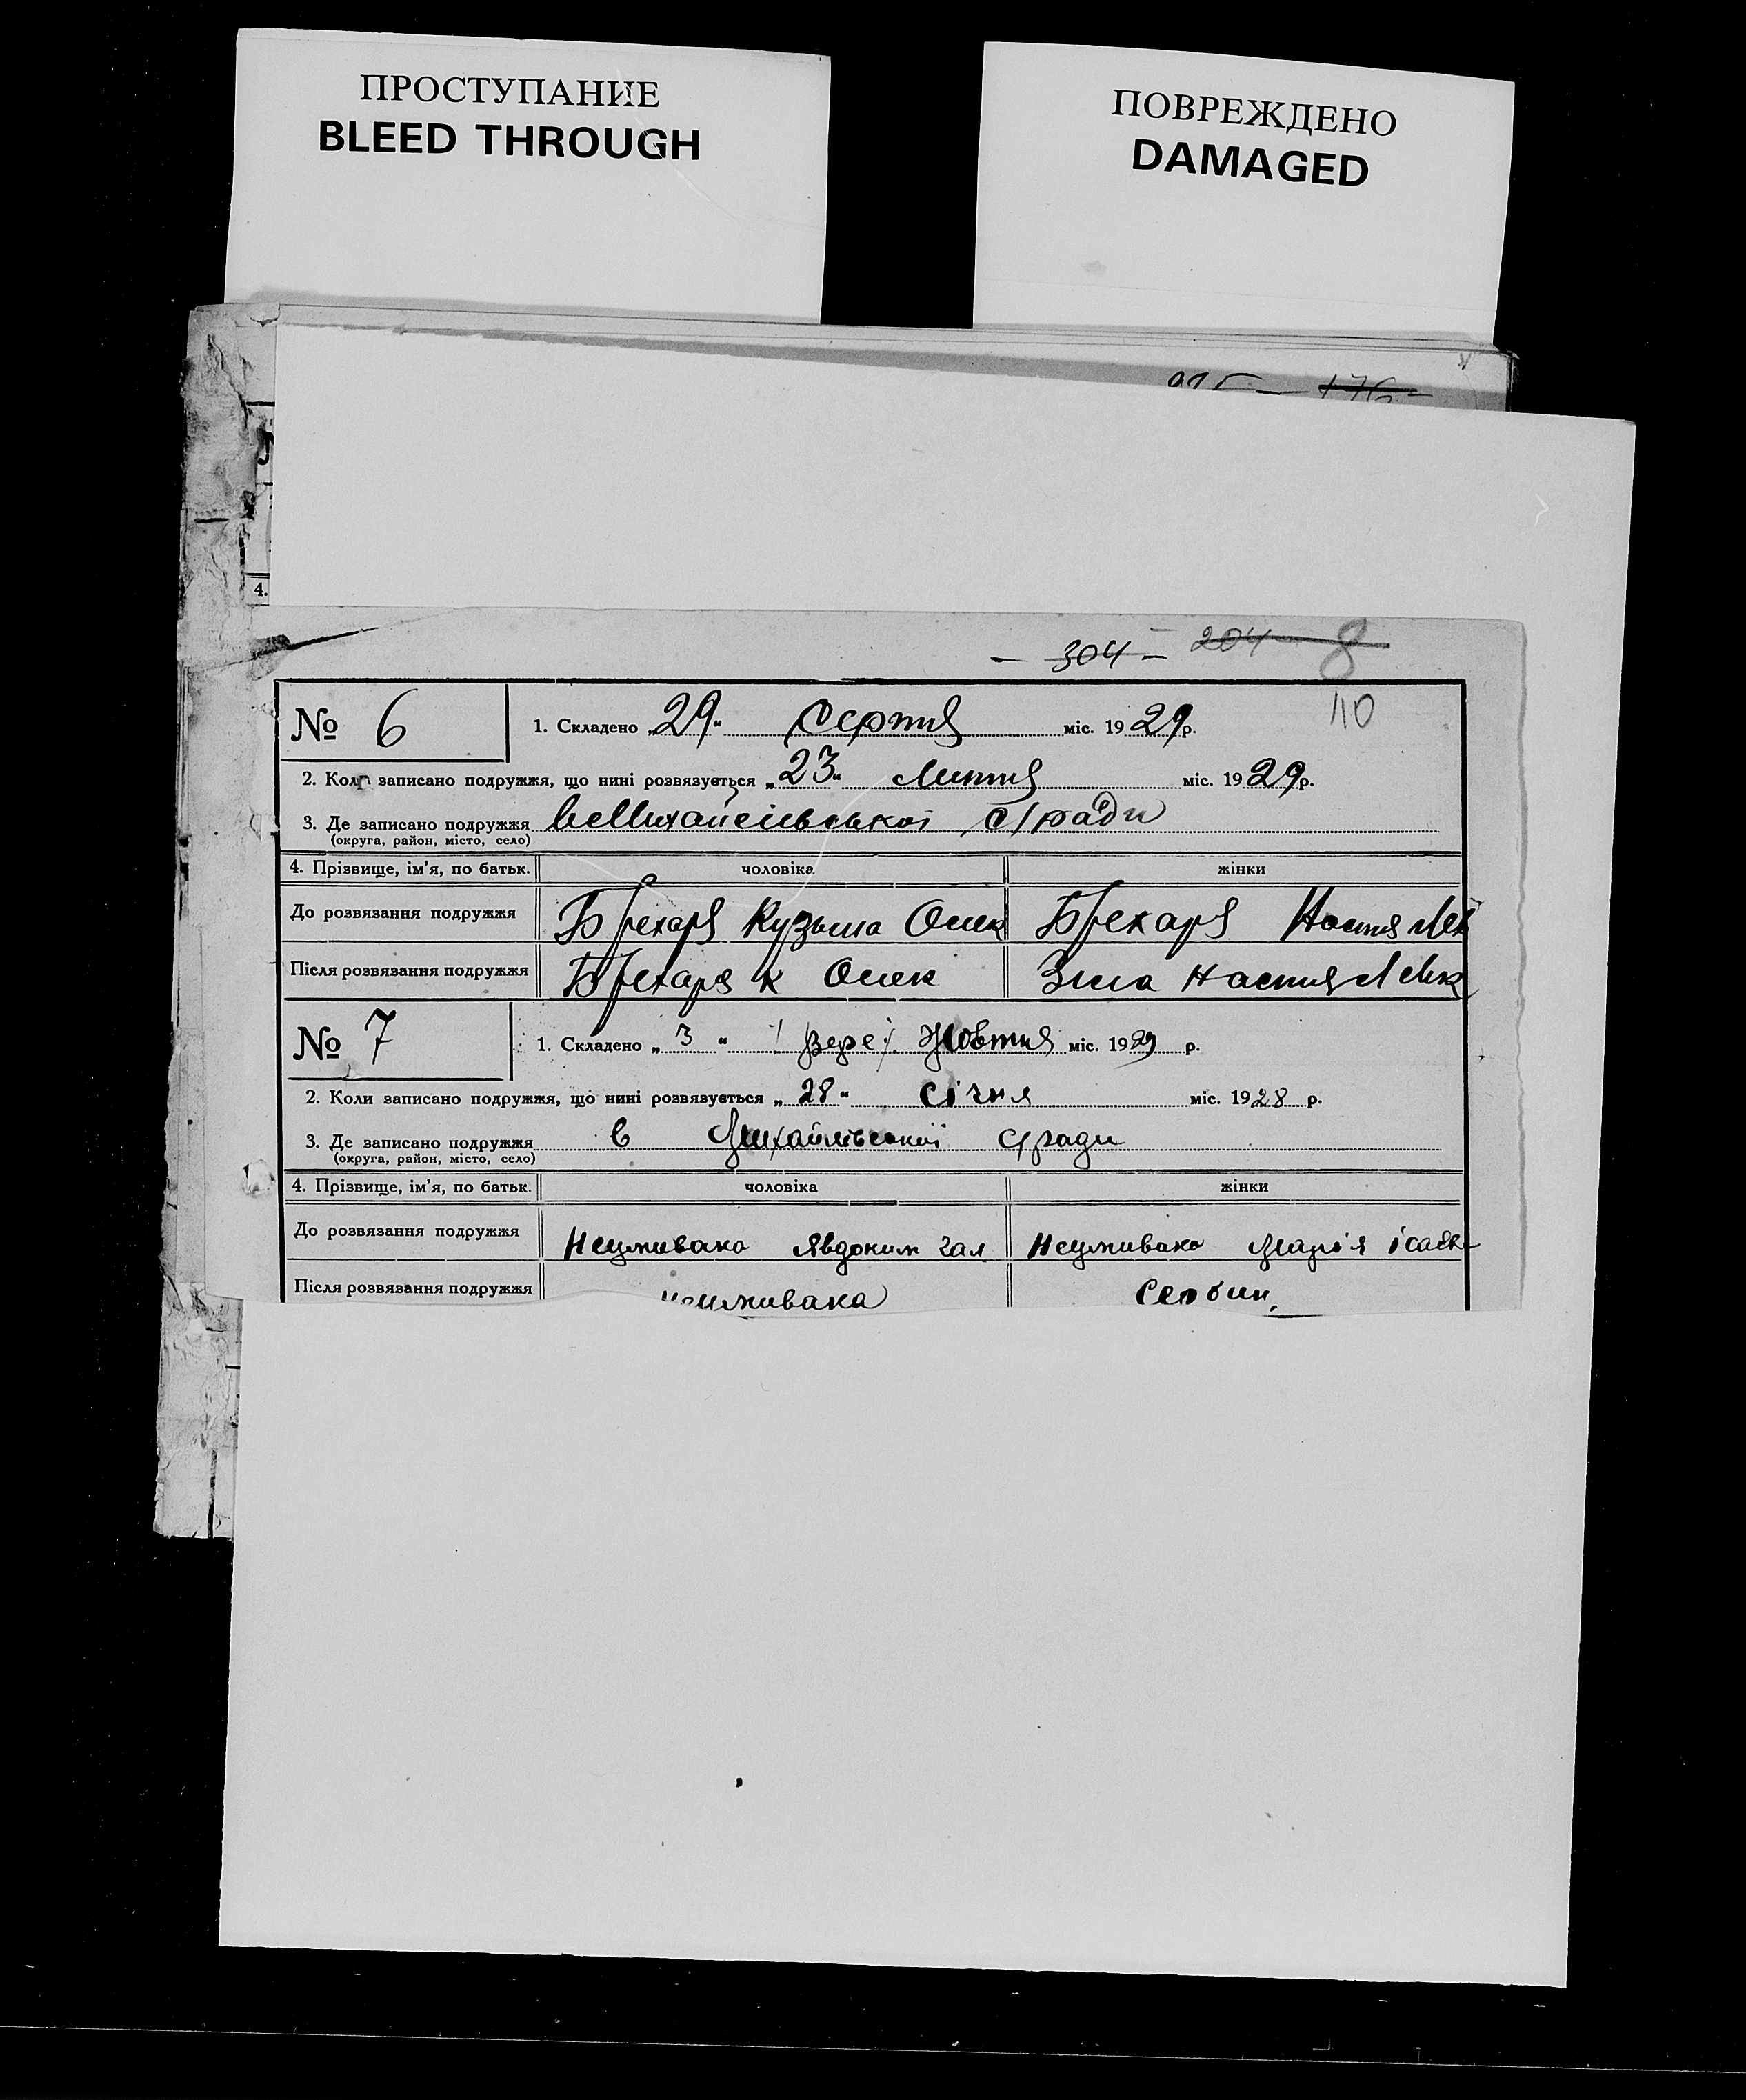 ПРОСТУПАНИЕ
BLEED THROUGH
ПОВРЕЖДЕНО
DAMAGED
4.
- 304 - 204 8
10
№ 6
1. Складено „29“ Серпня міс. 1929р.
2. Коли записано подружжя, що нині розвязується „23“ Липня міс. 1929р.
3. Де записано подружжя
(округа, район, місто, село)
с/ради
4. Прізвище, ім'я, по батьк. чоловіка жінки
До розвязання подружжя Брехаря Кузьма Олек Брехаря Настя Лек
Після розвязання подружжя Брехаря К Олек Зима Настя Лек
№ 7
1. Складено „3“ /вере/ Жовтня міс. 1929 р.
2. Коли записано подружжя, що нині розвязується „28“ Січня міс. 1928 р.
3. Де записано подружжя в Михайлівської с/ради
(округа, район, місто, село)
4. Прізвище, ім'я, по батьк. чоловіка жінки
До розвязання подружжя Неумивака Явдоким Гал Неумивака Марія ісаєв
Після розвязання подружжя Неумивака Сербин